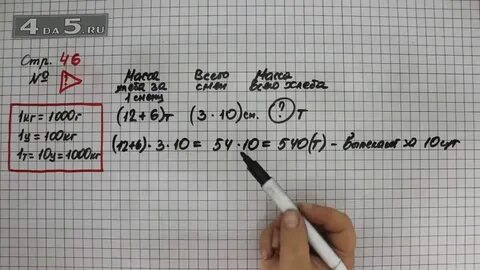 4 DA 5.RU
Стр. 46
№ !
Масса хлеба за 1 смену
Всего смен
Масса всего хлеба
(12+6)т (3·10)см. ? т
1кг = 1000г
1ц = 100кг
1т = 10ц = 1000кг
(12+6)·3·10 = 54·10 = 540(т) – выпекают за 10 сут